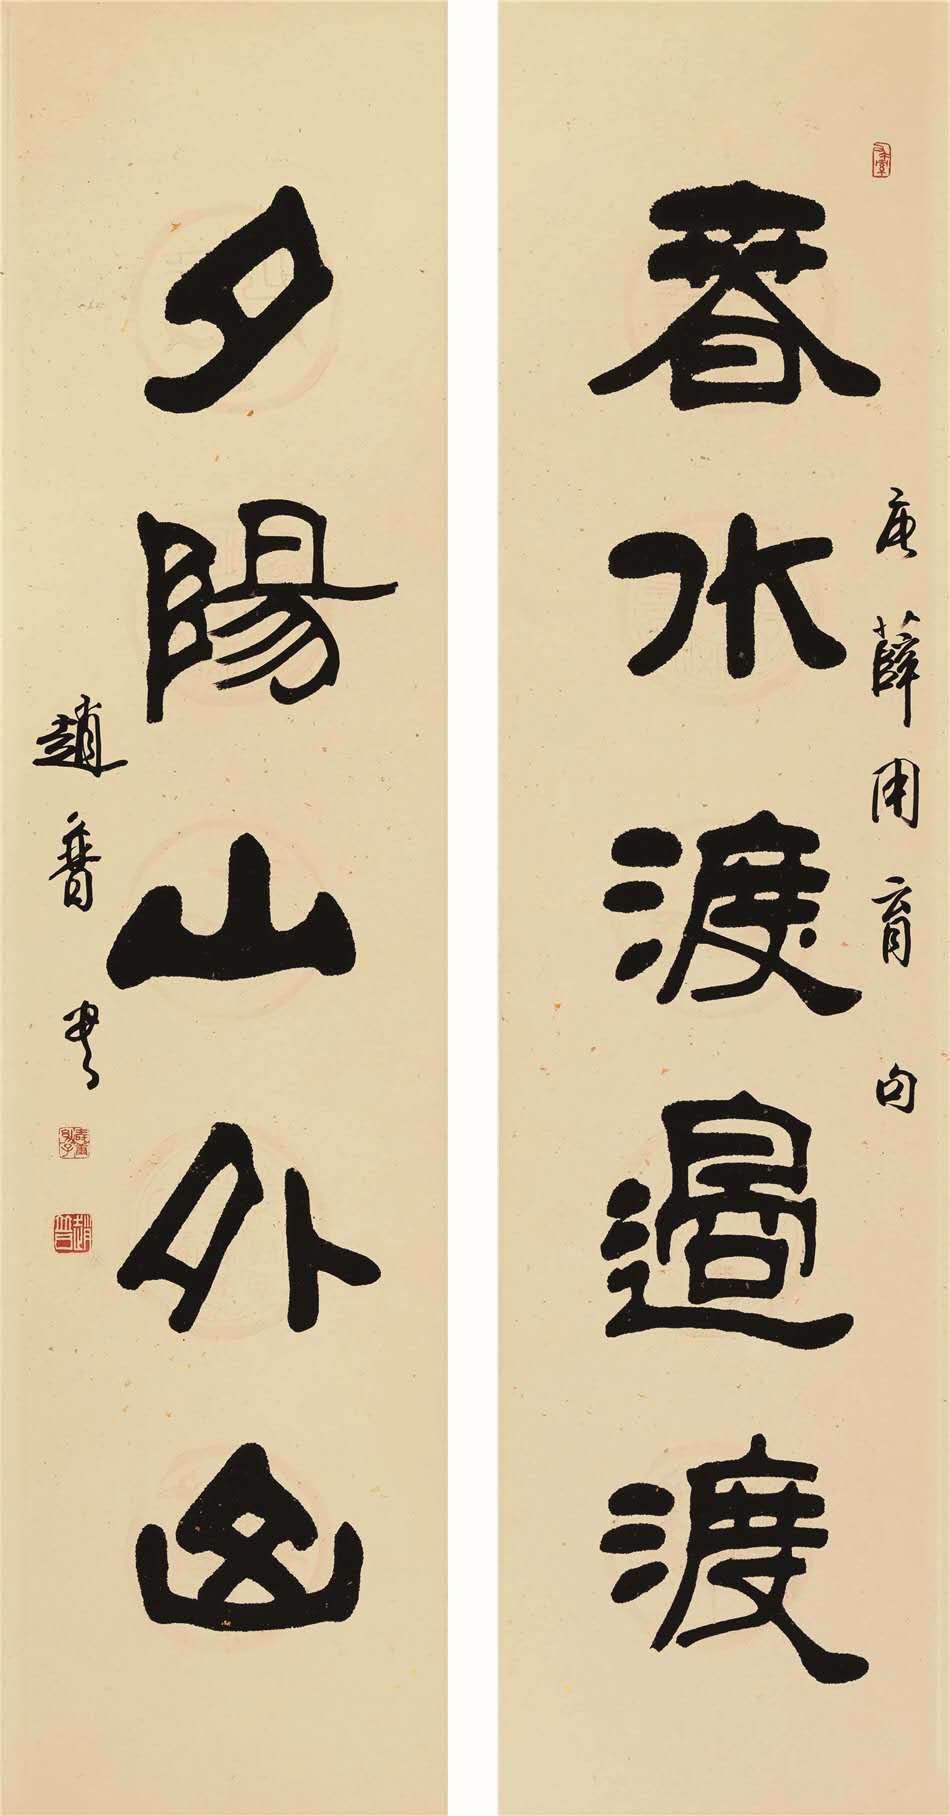 春水渡過渡
唐薛用育句
夕陽山外山
趙普書
趙普